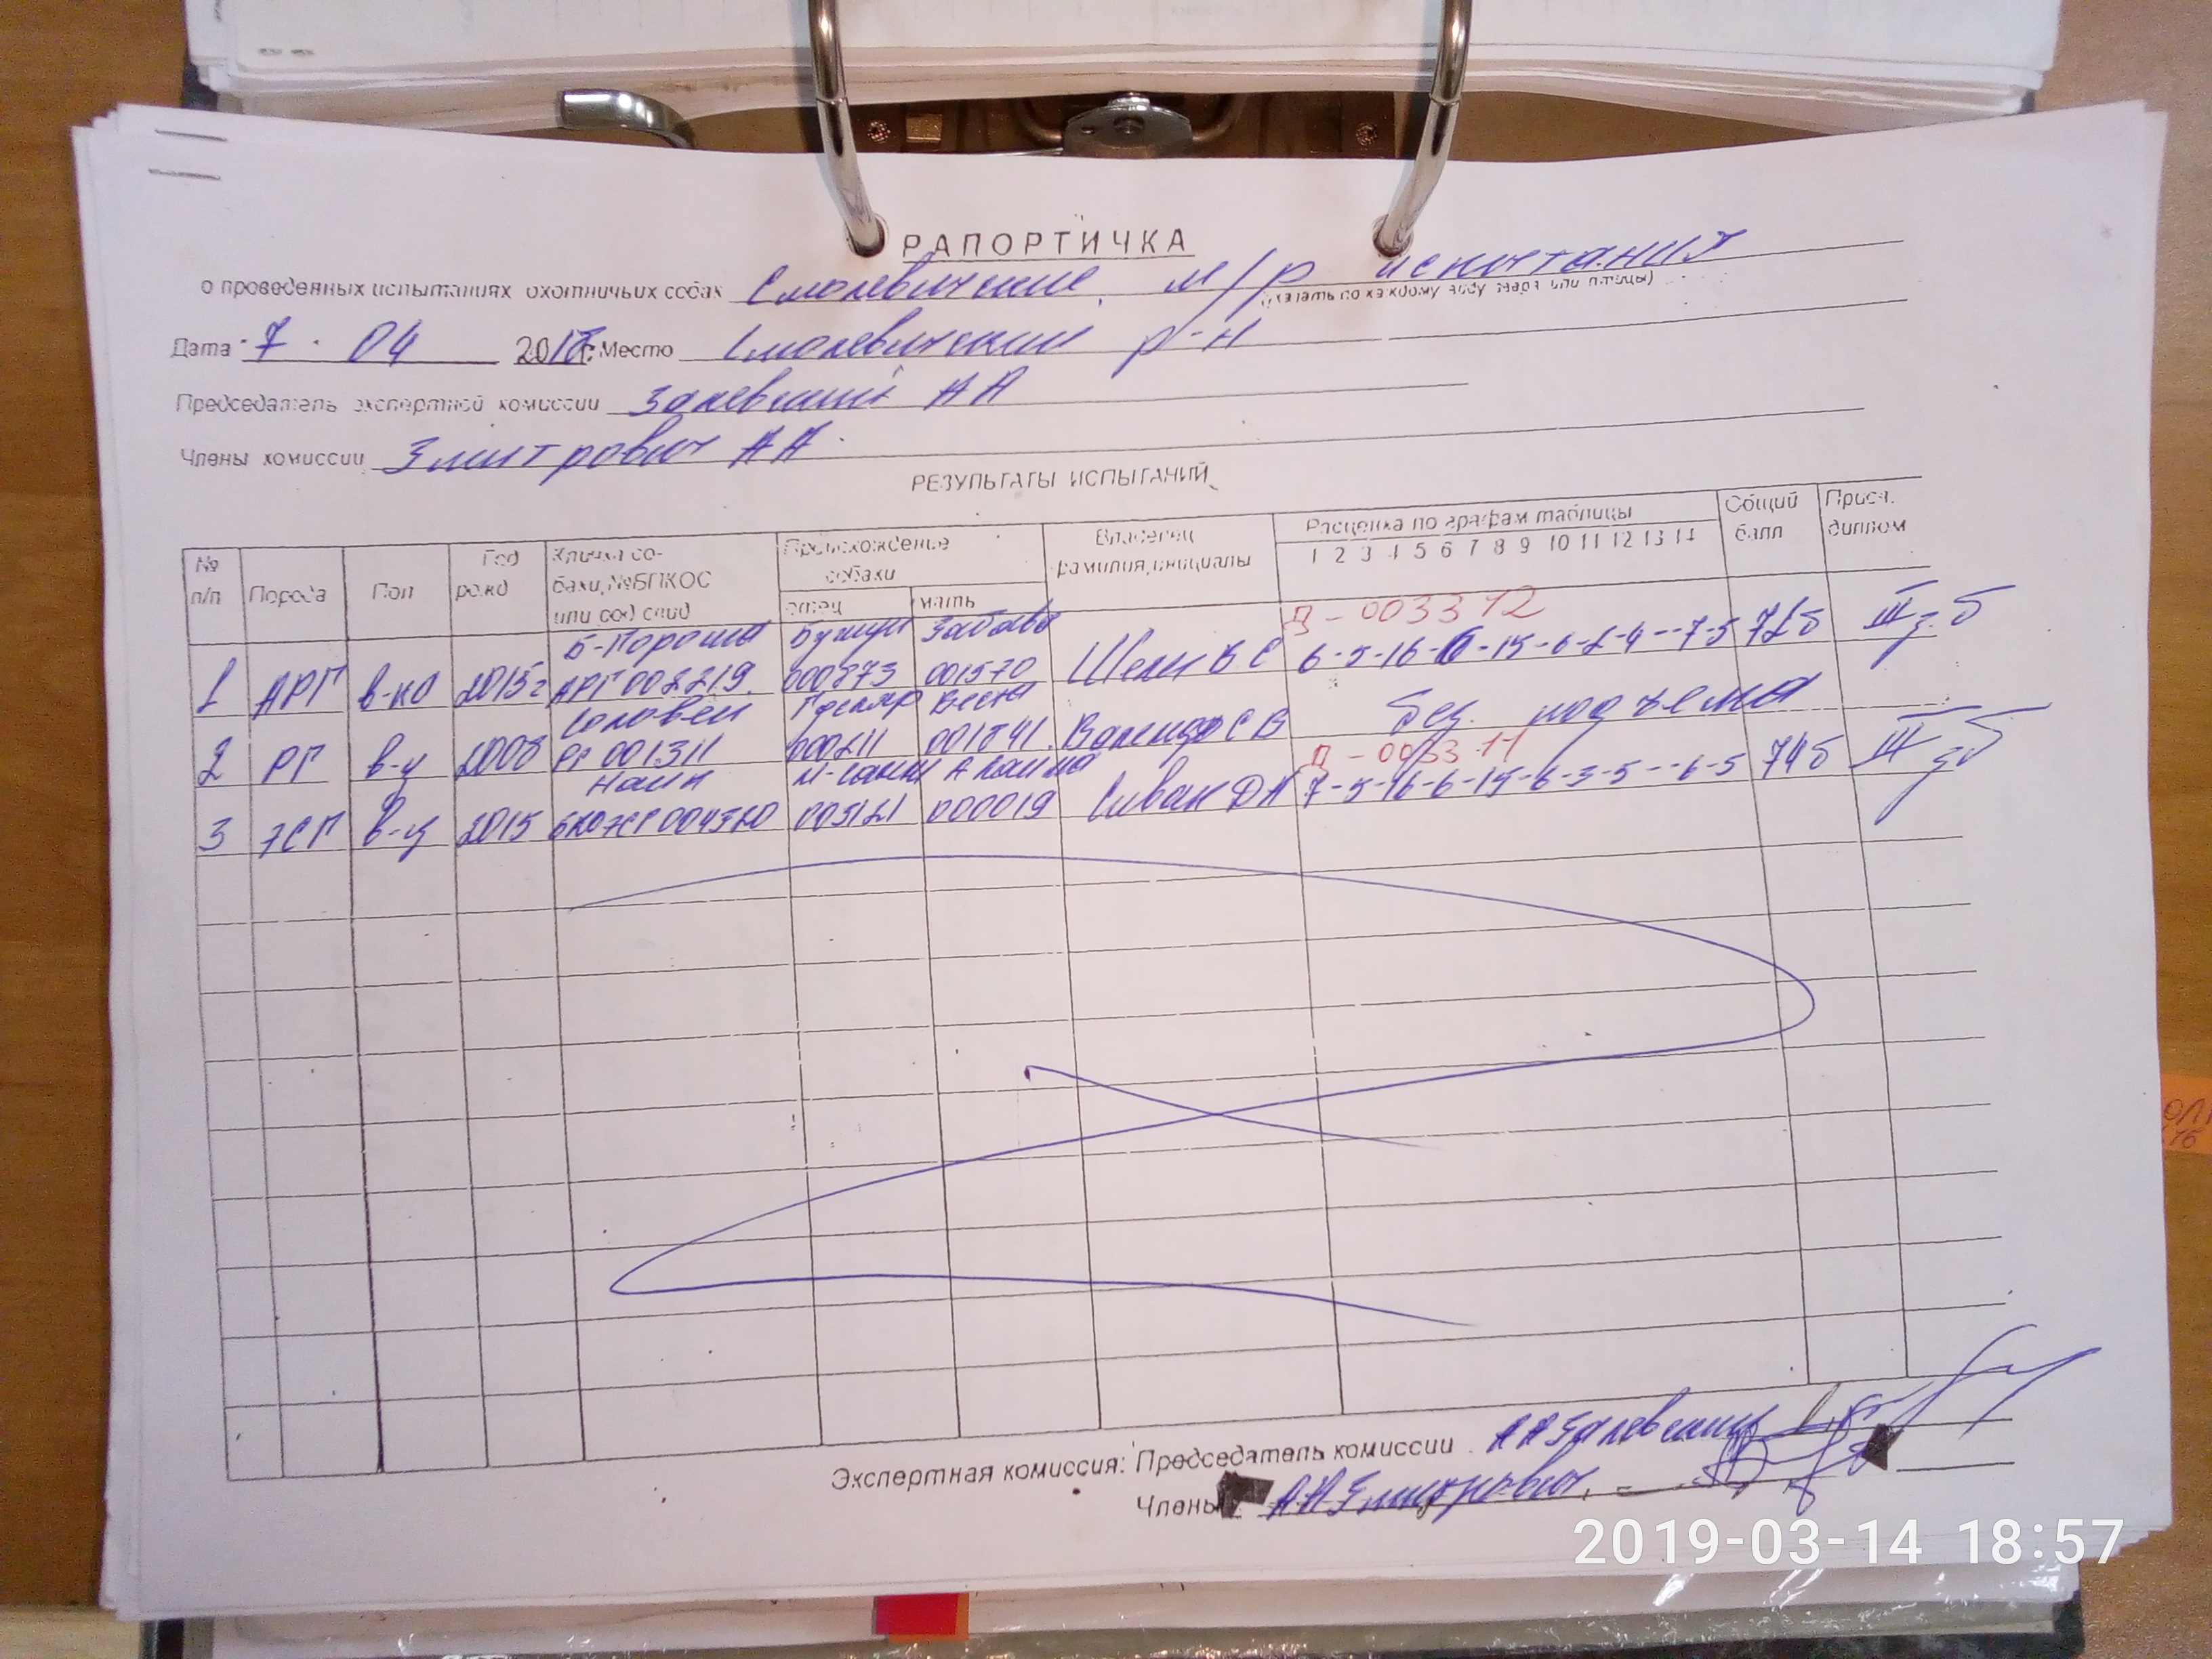 РАПОРТИЧКА
о проведенных испытаниях охотничьих собак Смолевичские м/р испытания
(указать по каждому виду зверя или птицы)
Дата 7. 04 2018г. Место Смолевичский р-н
Председатель экспертной комиссии Залевский АА
Члены комиссии Змитрович АА.
РЕЗУЛЬТАТЫ ИСПЫТАНИЙ
№ п/п Порода Пол Год рожд Кличка собаки, №БПКОС или род свид Происхождение собаки отец мать Владелец фамилия, инициалы Расценка по графам таблицы 1 2 3 4 5 6 7 8 9 10 11 12 13 14 Общий балл Присв. диплом
Д-003312
1 АРГ в-ка 2015г Б-Пороша АРГ 002219. 000873 Забава 001570 ВС 6-5-16-6-15-6-2-4--7-5 72б III з.б
2 РГ в-ц 2008 Соловей РГ 001311 000211 Веста 001841. СВ без подъема
Д-003311
3 ЭСГ в-ц 2015 Наип БКОЭСГ004320 005121 000019 Сивак ДА 7-5-16-6-15-6-3-5--6-5 74б III зб
Экспертная комиссия: Председатель комиссии АА Залевский
Члены АА Змитрович.
ОЛ
16
2019-03-14 18:57